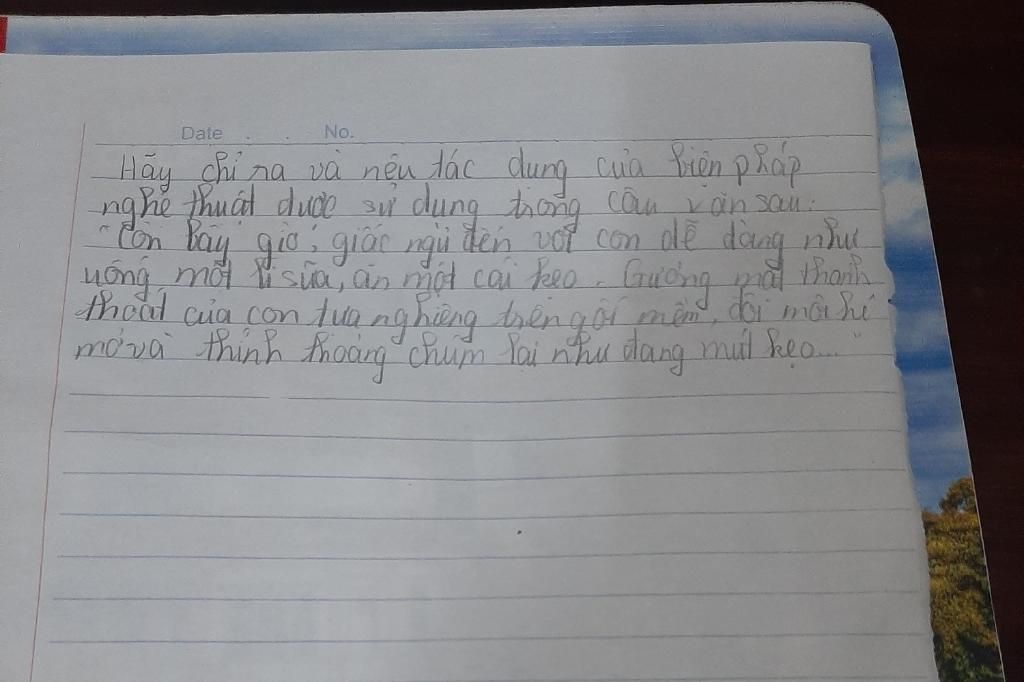 Date . . No.
Hãy chỉ ra và nêu tác dụng của biện pháp
nghệ thuật được sử dụng trong câu văn sau:
"Còn bây giờ, giấc ngủ đến với con dễ dàng như
uống một li sữa, ăn một cái kẹo. Gương mặt thanh
thoát của con tựa nghiêng trên gối mềm, đôi môi hé
mở và thỉnh thoảng chúm lại như đang mút kẹo..."